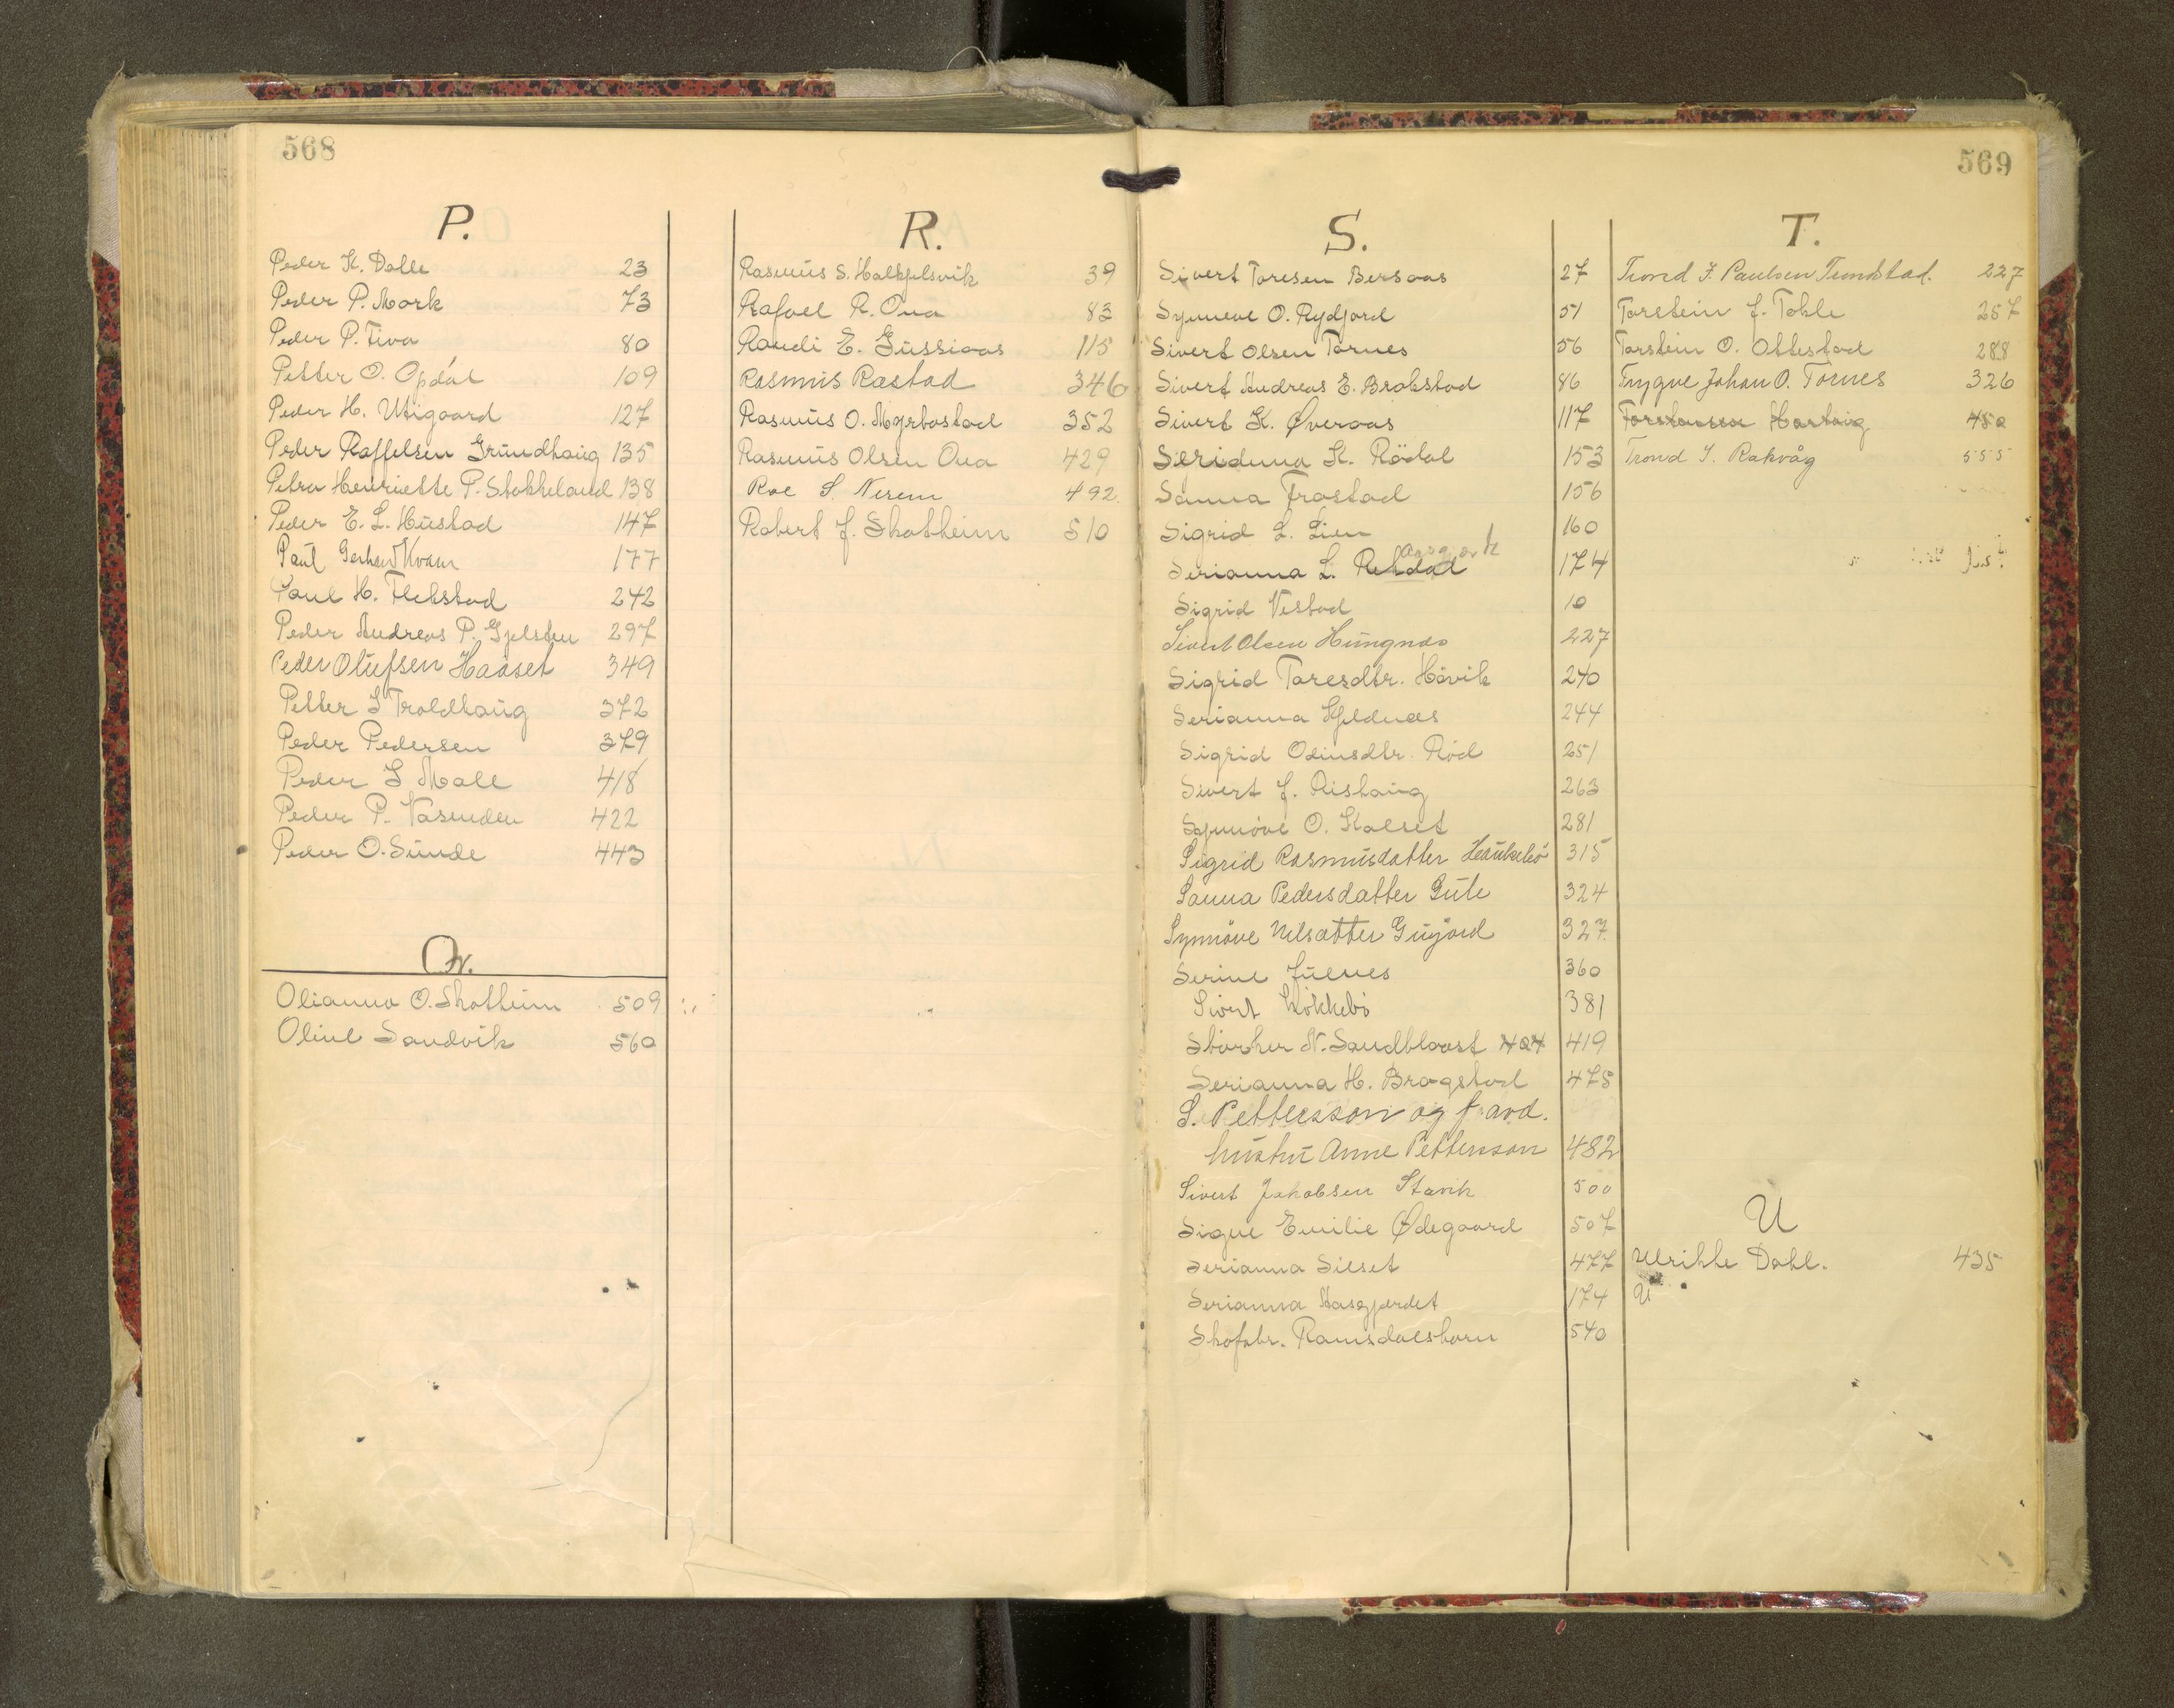 568
P.
Peder K. Dalle 23
Peder P. Mork 73
Peder P. Tiva 80
Petter O. Opdal 109
Peder H. Utigaard 127
Peder Raffelsen Grundhaug 135
Petra Henriette P. Stokkeland 138
Peder E. L. Hustad 147
Paul Gerhard Kvam 177
Paul H. Flekstad 242
Peder Andreas P. Gjelsten 297
Peder Olufsen Haaset 349
Petter L Troldhaug 372
Peder Pedersen 379
Peder L Male 418
Peder P. Vasenden 422
Peder O. Sunde 443
Olianna O. Skotheim 509
Oline Sandvik 560
R.
Rasmus S. Halkjelsvik 39
Rafael R. Oua 83
Randi E. Gussiaas 115
Rasmus Røstad 346
Rasmus O. Myrbostad 352
Rasmus Olsen Oua 429
Roe S. Nerem 492.
Robert J. Skotheim 510
569
S.
Sivert Toresen Bersaas 27
Synneve O. Rydjord 51
Sivert Olsen Tornes 56
Sivert Andreas E. Brokstad 86
Sivert K. Øveraas 117
Serianna K. Rödal 153
Sanna Frostad 156
Sigrid L. Lien 160
Serianna L. 174
Sigrid Vestad 10
Sivert Olsen Hungnes 227
Sigrid Toresdtr. Hövik 240
Serianna Kjeldnæs 244
Sigrid Odinsdtr. Röd 251
Sivert J. Rishaug 263
Synnöve O. Kalset 281
Sigrid Rasmusdatter Haukebö 315
Sanna Pedersdatter Gule 324
Synnöve Nelsatter Gujord 327.
Serine Julnes 360
Sivert Lökkebö 381
Störker N. Sandblaast 404 419
Serianna H. Brogstad 475
S. Pettersson og f. avd.
hustru Anne Pettersson 482
Sivert Jakobsen Stavik 500
Signe Emilie Ødegaard 507
Serianna Silset 477
Serianna Aasgjerdet 174
Skofabr. Romsdalshorn 540
T.
Trond J. Paulsen Trondstad. 227
Torstein J. Tokle 257
Torstein O. Ottestad 288
Trygve Johan O. Tornes 326
Torstensen Hartvig 450
Trond I. Rakvåg 555
U
Ulrikke Dahl. 435
U